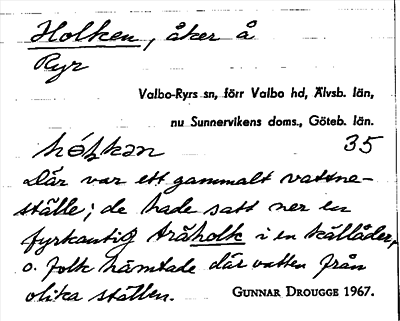 Holken, åker å
Ryr
Valbo-Ryrs sn, förr Valbo hd, Älvsb. län,
nu Sunnervikens doms., Göteb. län.
hóḷkən 35
Där var ett gammalt vattne-
ställe; de hade satt ner en
fyrkantig träholk i en källåder,
o. folk hämtade där vatten från
olika ställen. GUNNAR DROUGGE 1967.